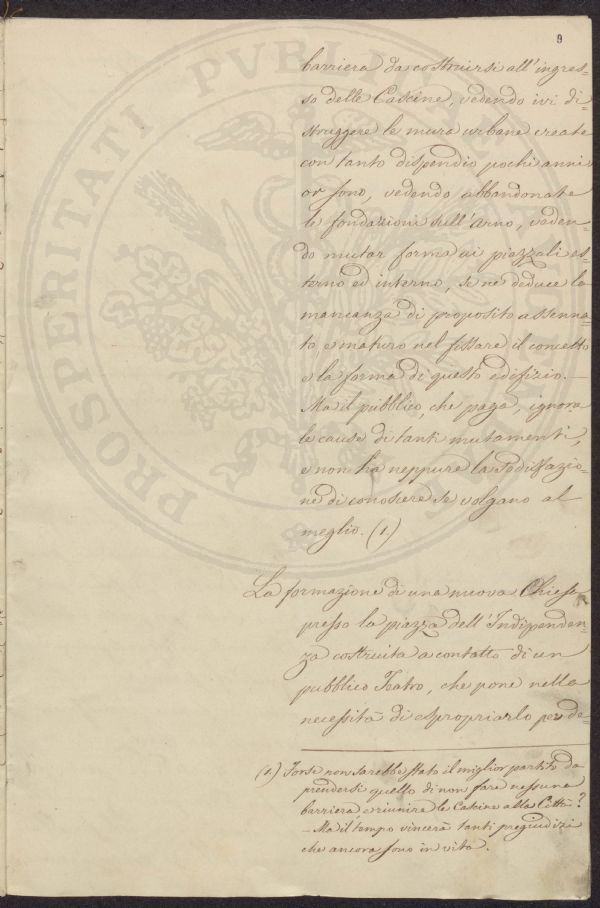 9
barriera da costruirsi all'ingres=
so delle Cascine, vedendo ivi di=
struggere le mura urbane create
con tanto dispendio pochi anni
or sono, vedendo abbandonate
le fondazioni sull'Arno, veden=
do mutar forma ai piazzali es=
terno ed interno, se ne deduce la
mancanza di proposito assenna=
to, e maturo nel fissare il concetto
e la forma di questo edifizio. —
Ma il pubblico, che paga, ignora
le cause di tanti mutamenti,
e non ha neppure la sodisfazio=
ne di conoscere se volgano al
meglio. (1.)
La formazione di una nuova Chiesa
presso la piazza dell'Indipenden=
za costruita a contatto di un
pubblico Teatro, che pone nella
necessità di espropriarlo per de=
(1.) Forse non sarebbe stato il miglior partito da
prendersi quello di non fare nessuna
barriera e riunire le Cascine alla Città?
— Ma il tempo vincerà tanti pregiudizi
che ancora sono in vita.
PROSPERITATI PVBLICAE